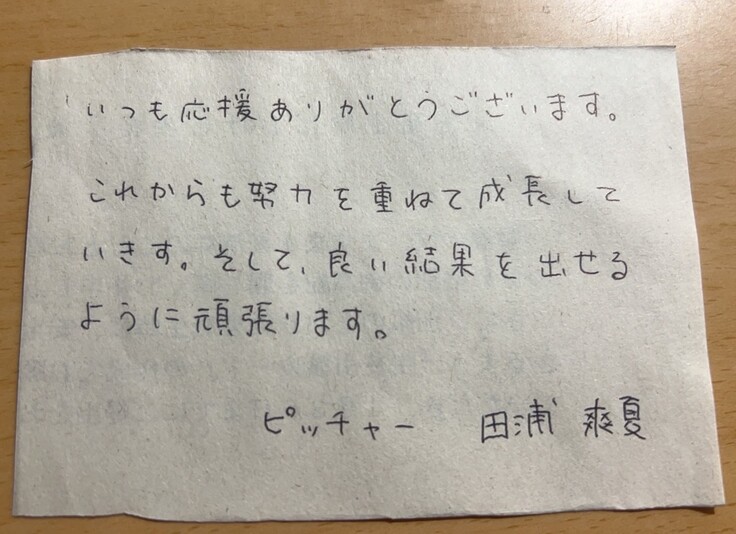 いつも応援ありがとうございます。
これからも努力を重ねて成長して
いきます。そして、良い結果を出せる
ように頑張ります。
ピッチャー 田浦 爽夏